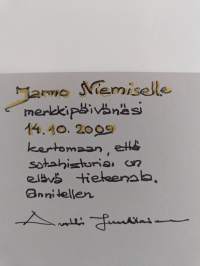 Jarmo Niemiselle
merkkipäivänäsi
14.10.2009
kertomaan, että
sotahistoria on
elävä tieteenala.
Onnitellen